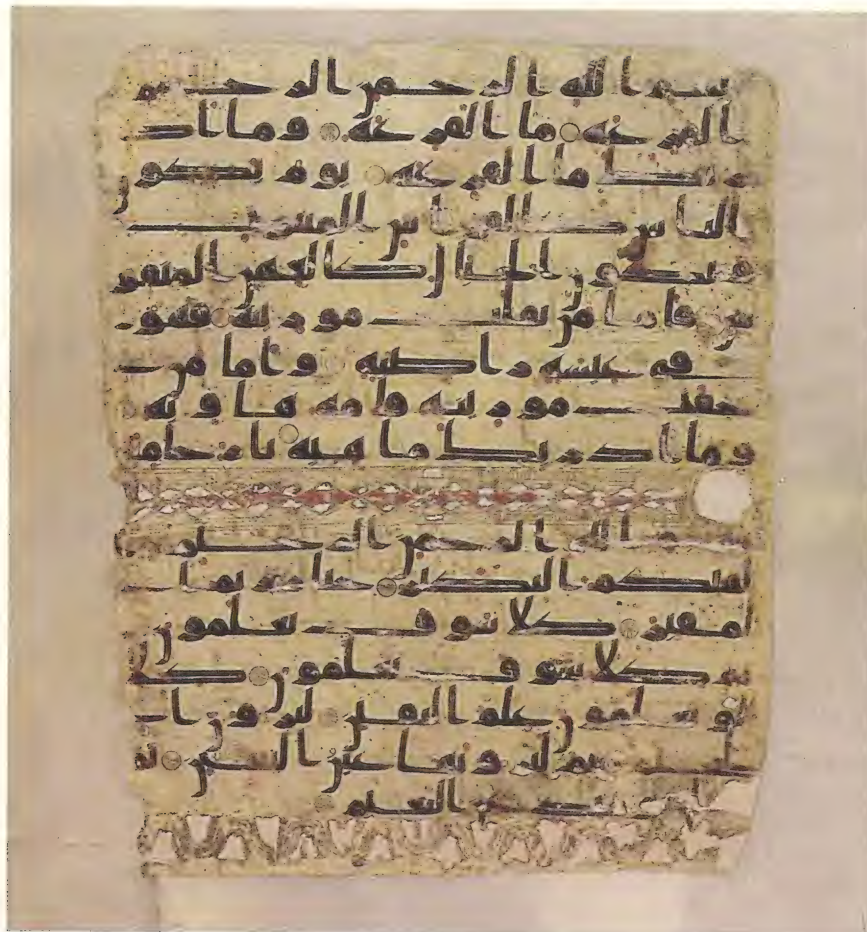 بسم الله الرحمن الرحيم
القرعه ما القرعه وما اد
ريك ما القرعه يوم يكون
الناس كالفراش المبثوث
وتكون الجبال كالعهن المنفو
ش فاما من ثقلت موزينه فهو
في عيشه راضيه واما من
خفت موزينه فامه هاويه
وما ادريك ما هيه نار حاميه
بسم الله الرحمن الرحيم
الهيكم التكثر حتى زرتم ا
لمقبر كلا سوف تعلمون
ثم كلا سوف تعلمون كلا
لو تعلمون علم اليقين لترون ا
لجحيم ثم لترونها عين اليقين ثم
يومئذ عن النعيم